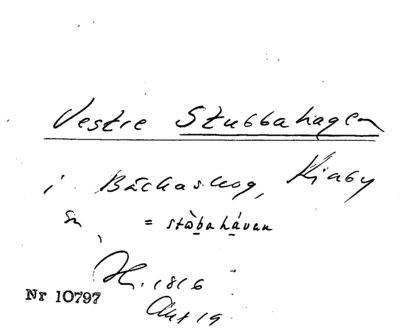 Vestre Stubbahagen
i Bäckaskog, Kiaby
sn = stòbahávan
H. 1816
Akt 19
Nr 10797